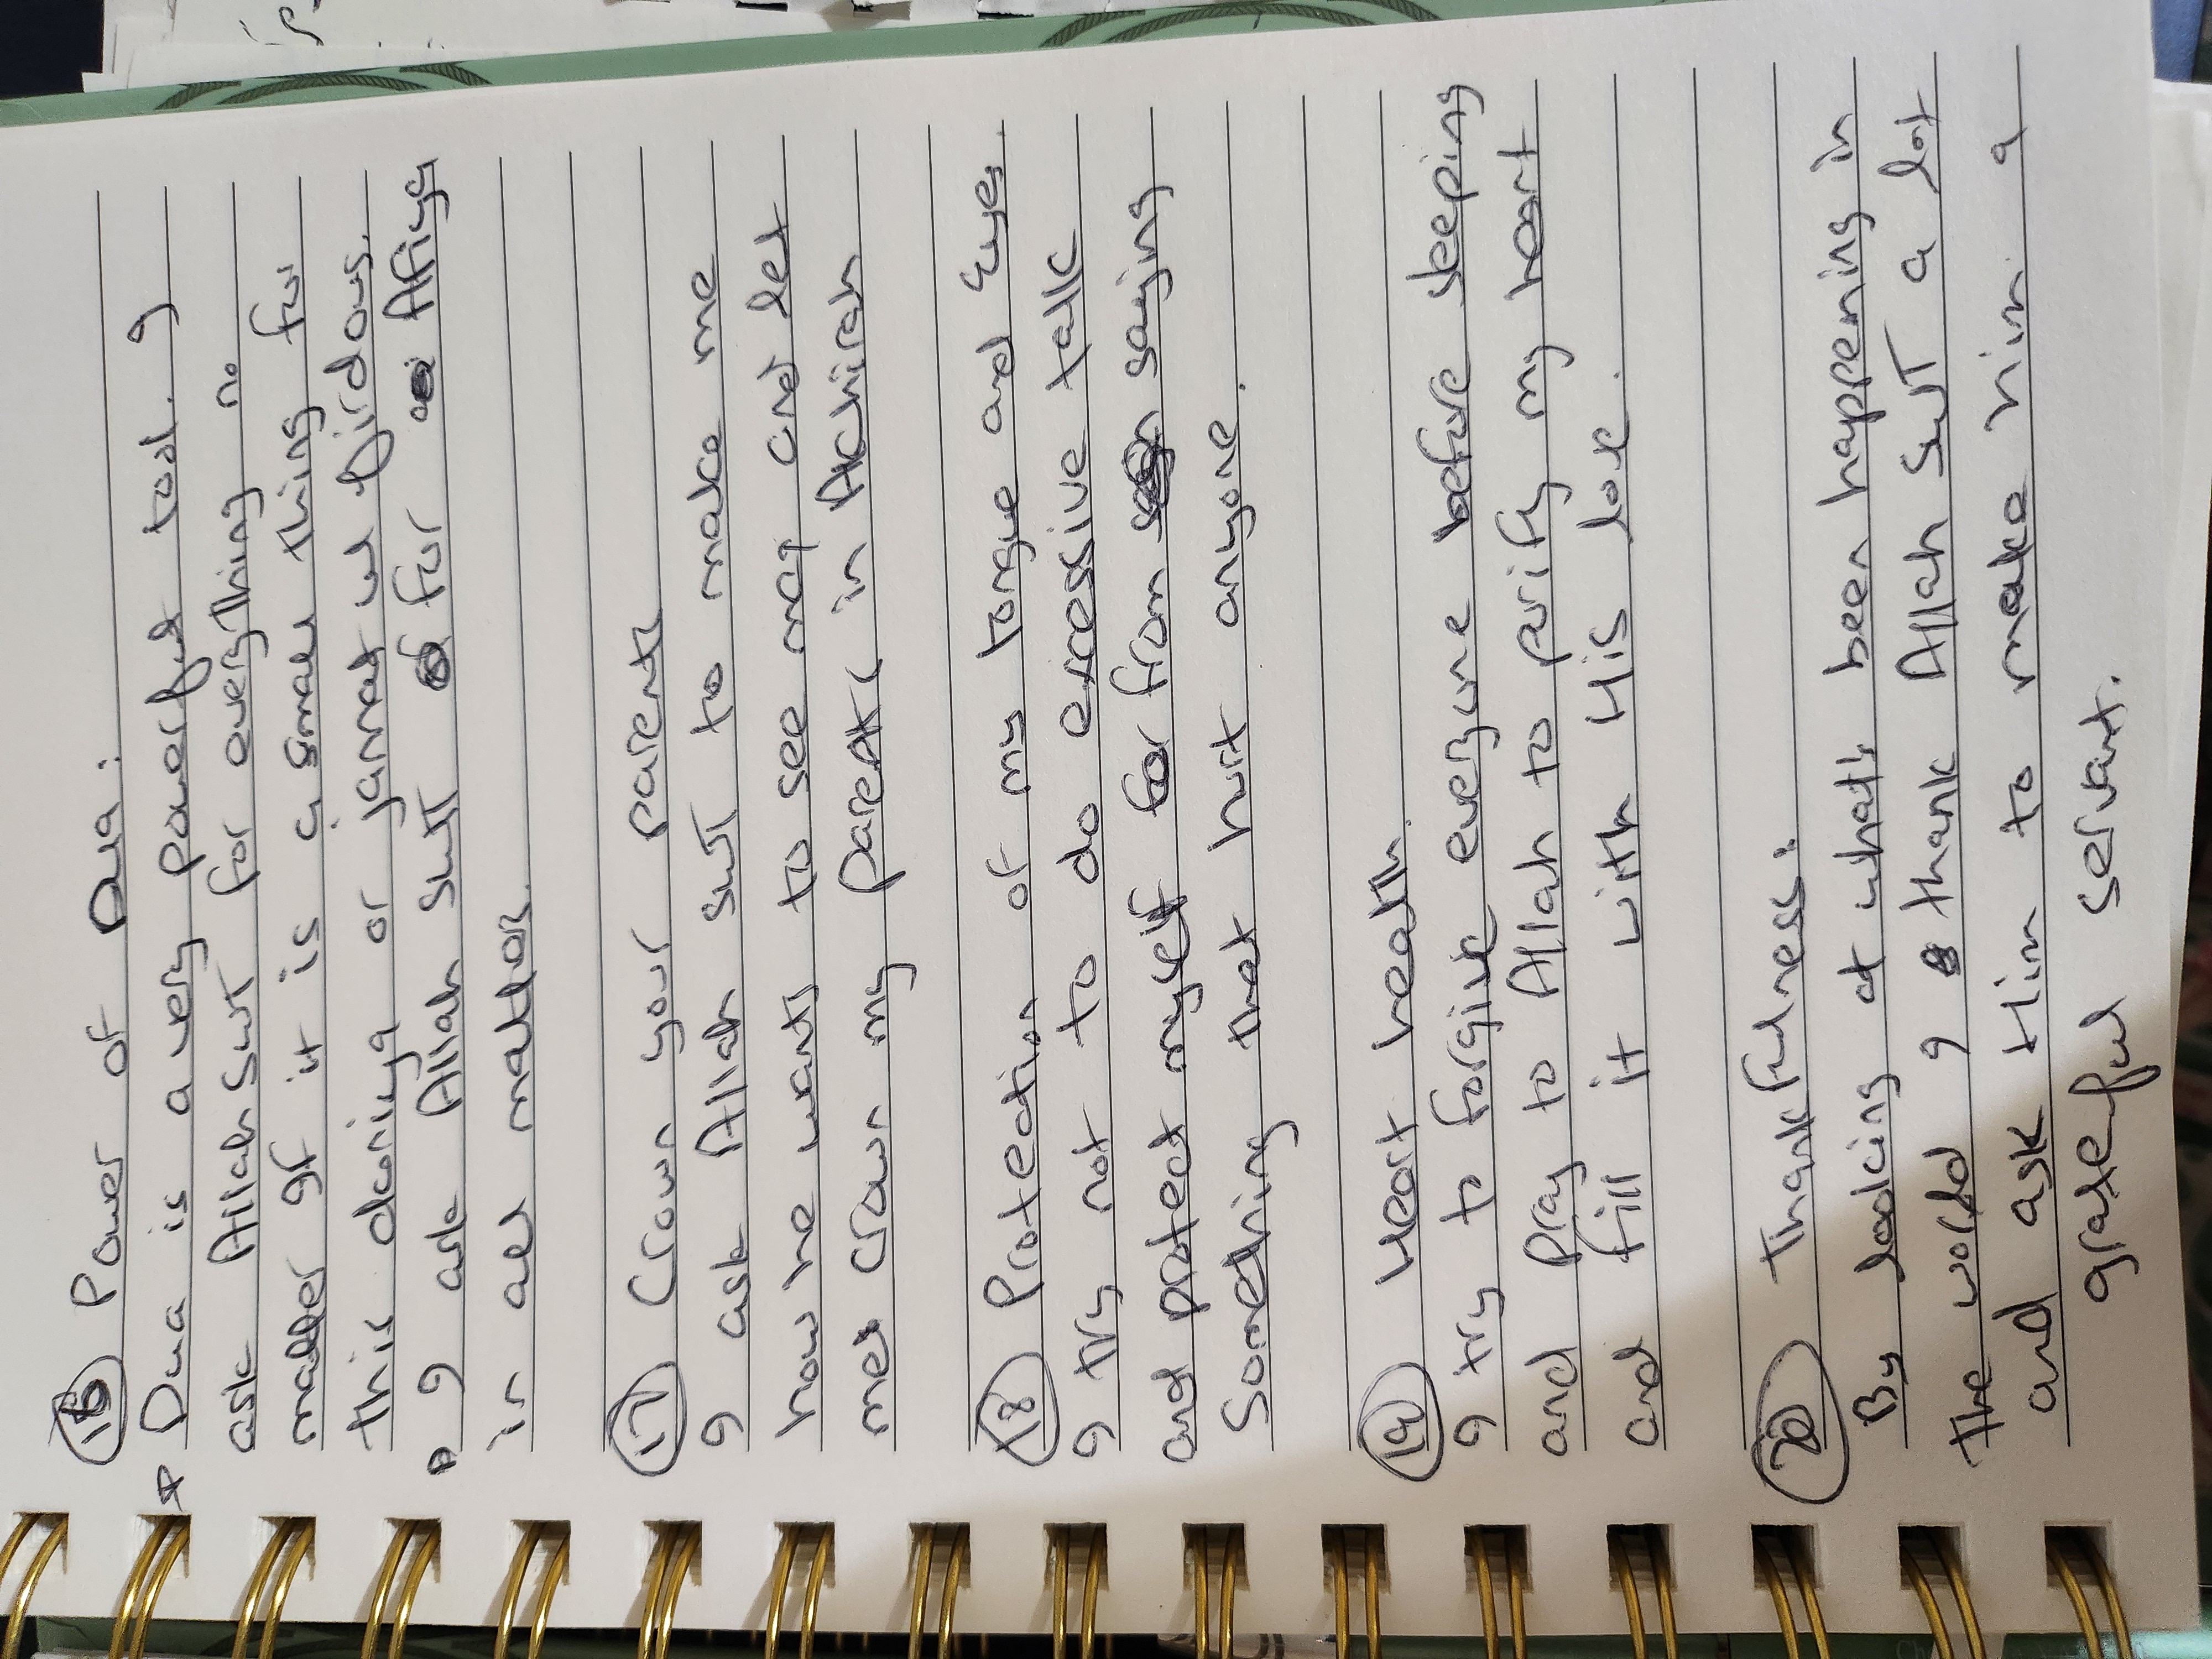 16 Power of Dua:
* Dua is a very powerful tool. I
ask Allah SWT for everything no
matter If it is a small thing for
this duniya or jannat ul firdous.
I ask Allah SWT for Afiya
in all matters.
17 Crown your parents
I ask Allah SWT to make me
how he wants to see me and let
me crown my parents in Akhirah
18 Protection of my tongue and Eyes
I try not to do excessive talk
and protect myself from saying
Something that hurt anyone.
19 Heart health.
I try to forgive everyone before sleeping
and pray to Allah to purify my heart
and fill it with His love.
20 Thankfulness:
By looking at what's been happening in
the world I thank Allah SWT a lot
and ask Him to make him a
grateful servant.